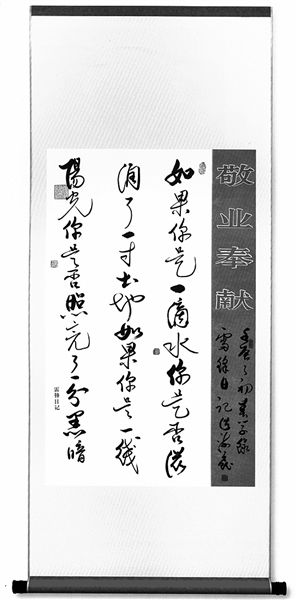 敬业奉献
如果你是一滴水你是否滋
润了一寸土地如果你是一线
陽光你是否照亮了一分黑暗
雷锋日记